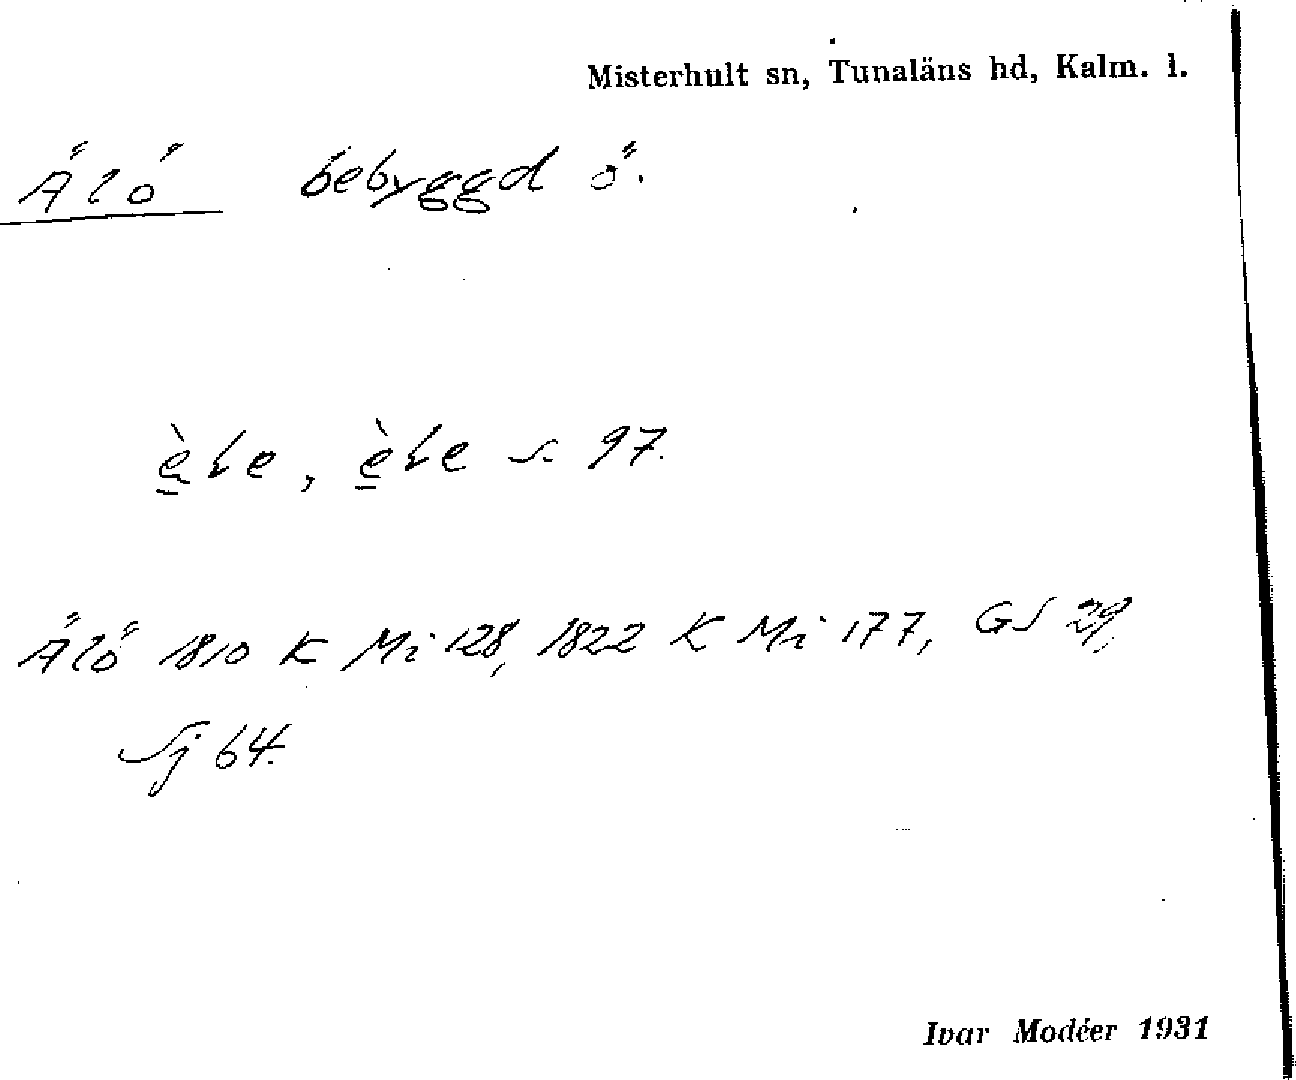 Misterhult sn, Tunaläns hd, Kalm. l.
Älö bebyggd ö.
s. 97.
Älö 1810 K Mi 128, 1822 K Mi 177, GS 29,
Sj 64.
Ivar Modéer 1931